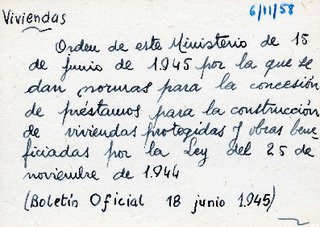 Viviendas 6/11/58
Orden de este Ministerio de 15
de junio de 1.945 por la que se
dan normas para la concesión
de préstamos para la construcción
de viviendas protegidas y obras bene-
ficiadas por la Ley del 25 de
noviembre de 1.944
(Boletín Oficial 18 junio 1.945)